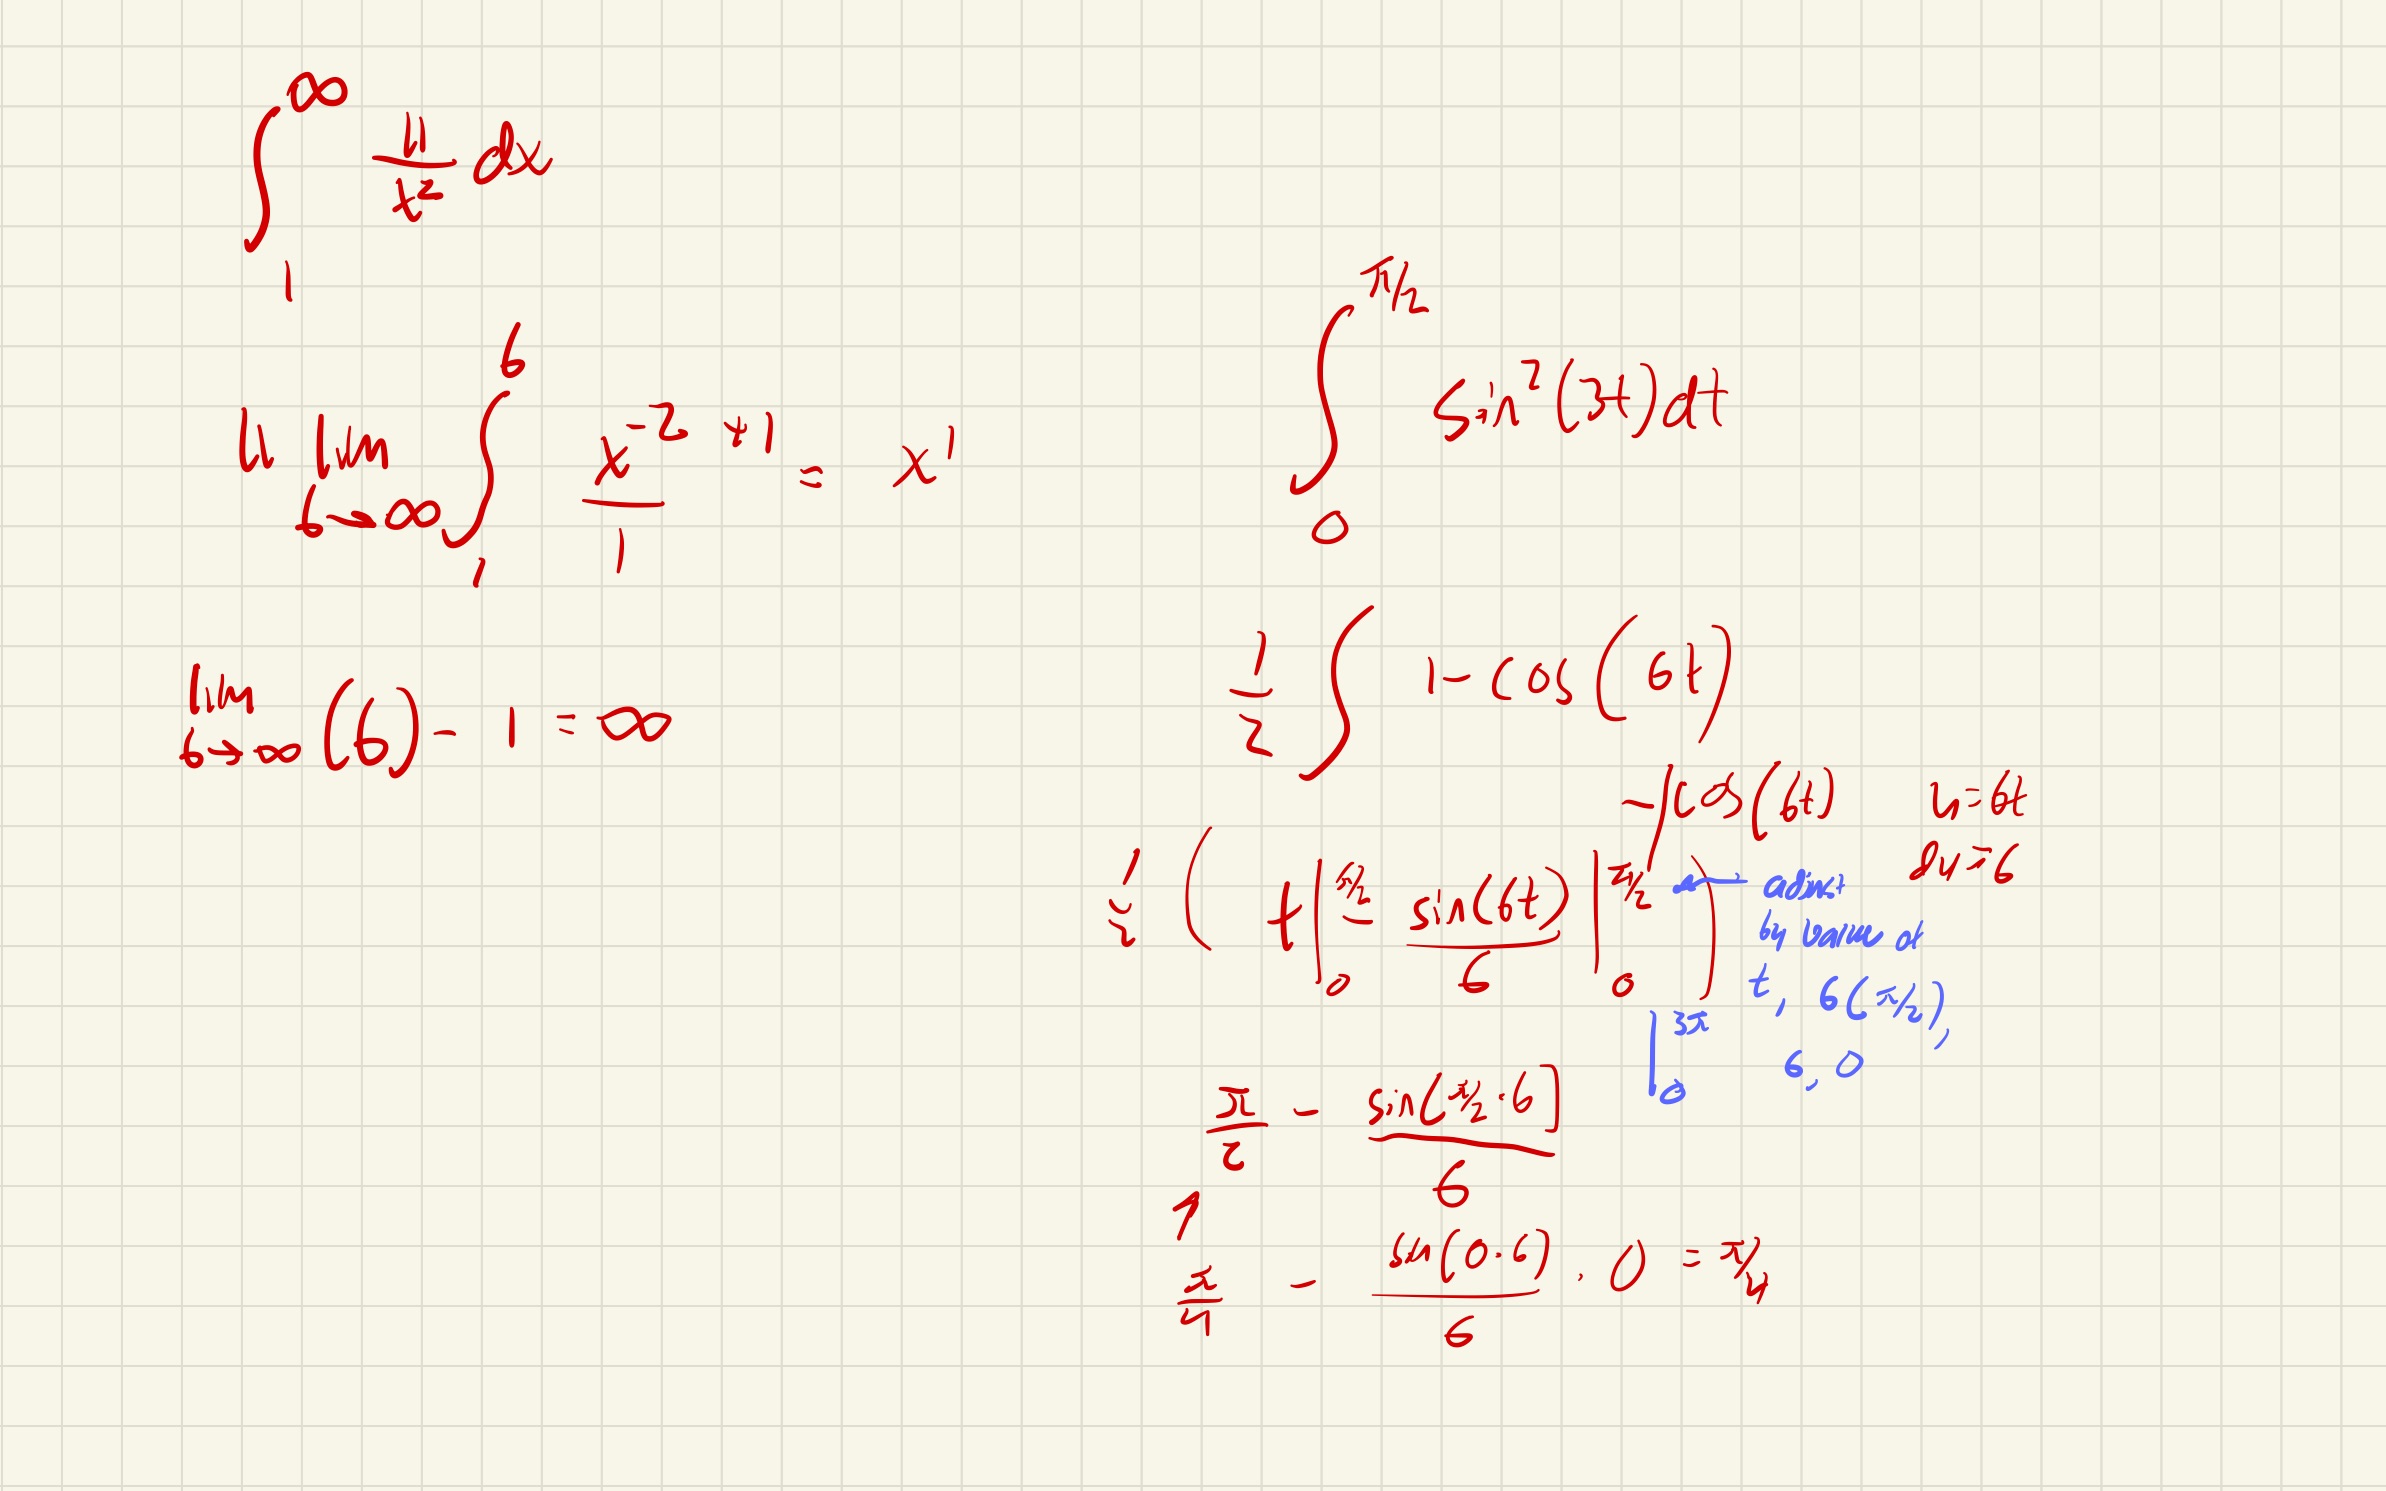 ∫₁^∞ 4/x² dx
4 lim b→∞ ∫₁^b x^(-2 +1)/1 = x¹
lim b→∞ (b) - 1 = ∞
∫₀^(π/2) sin²(3t)dt
1/2 ∫ 1 - cos(6t)
-∫cos(6t) u = 6t
du = 6
1/2 ( t |₀^(π/2) - sin(6t)/6 |₀^(π/2) ) ← adjust
by value of
t, 6(π/2),
|₀^(3π) 6, 0
π/2 - sin(π/2 · 6)/6
↑
π/4 - sin(0·6)/6 · 0 = π/4